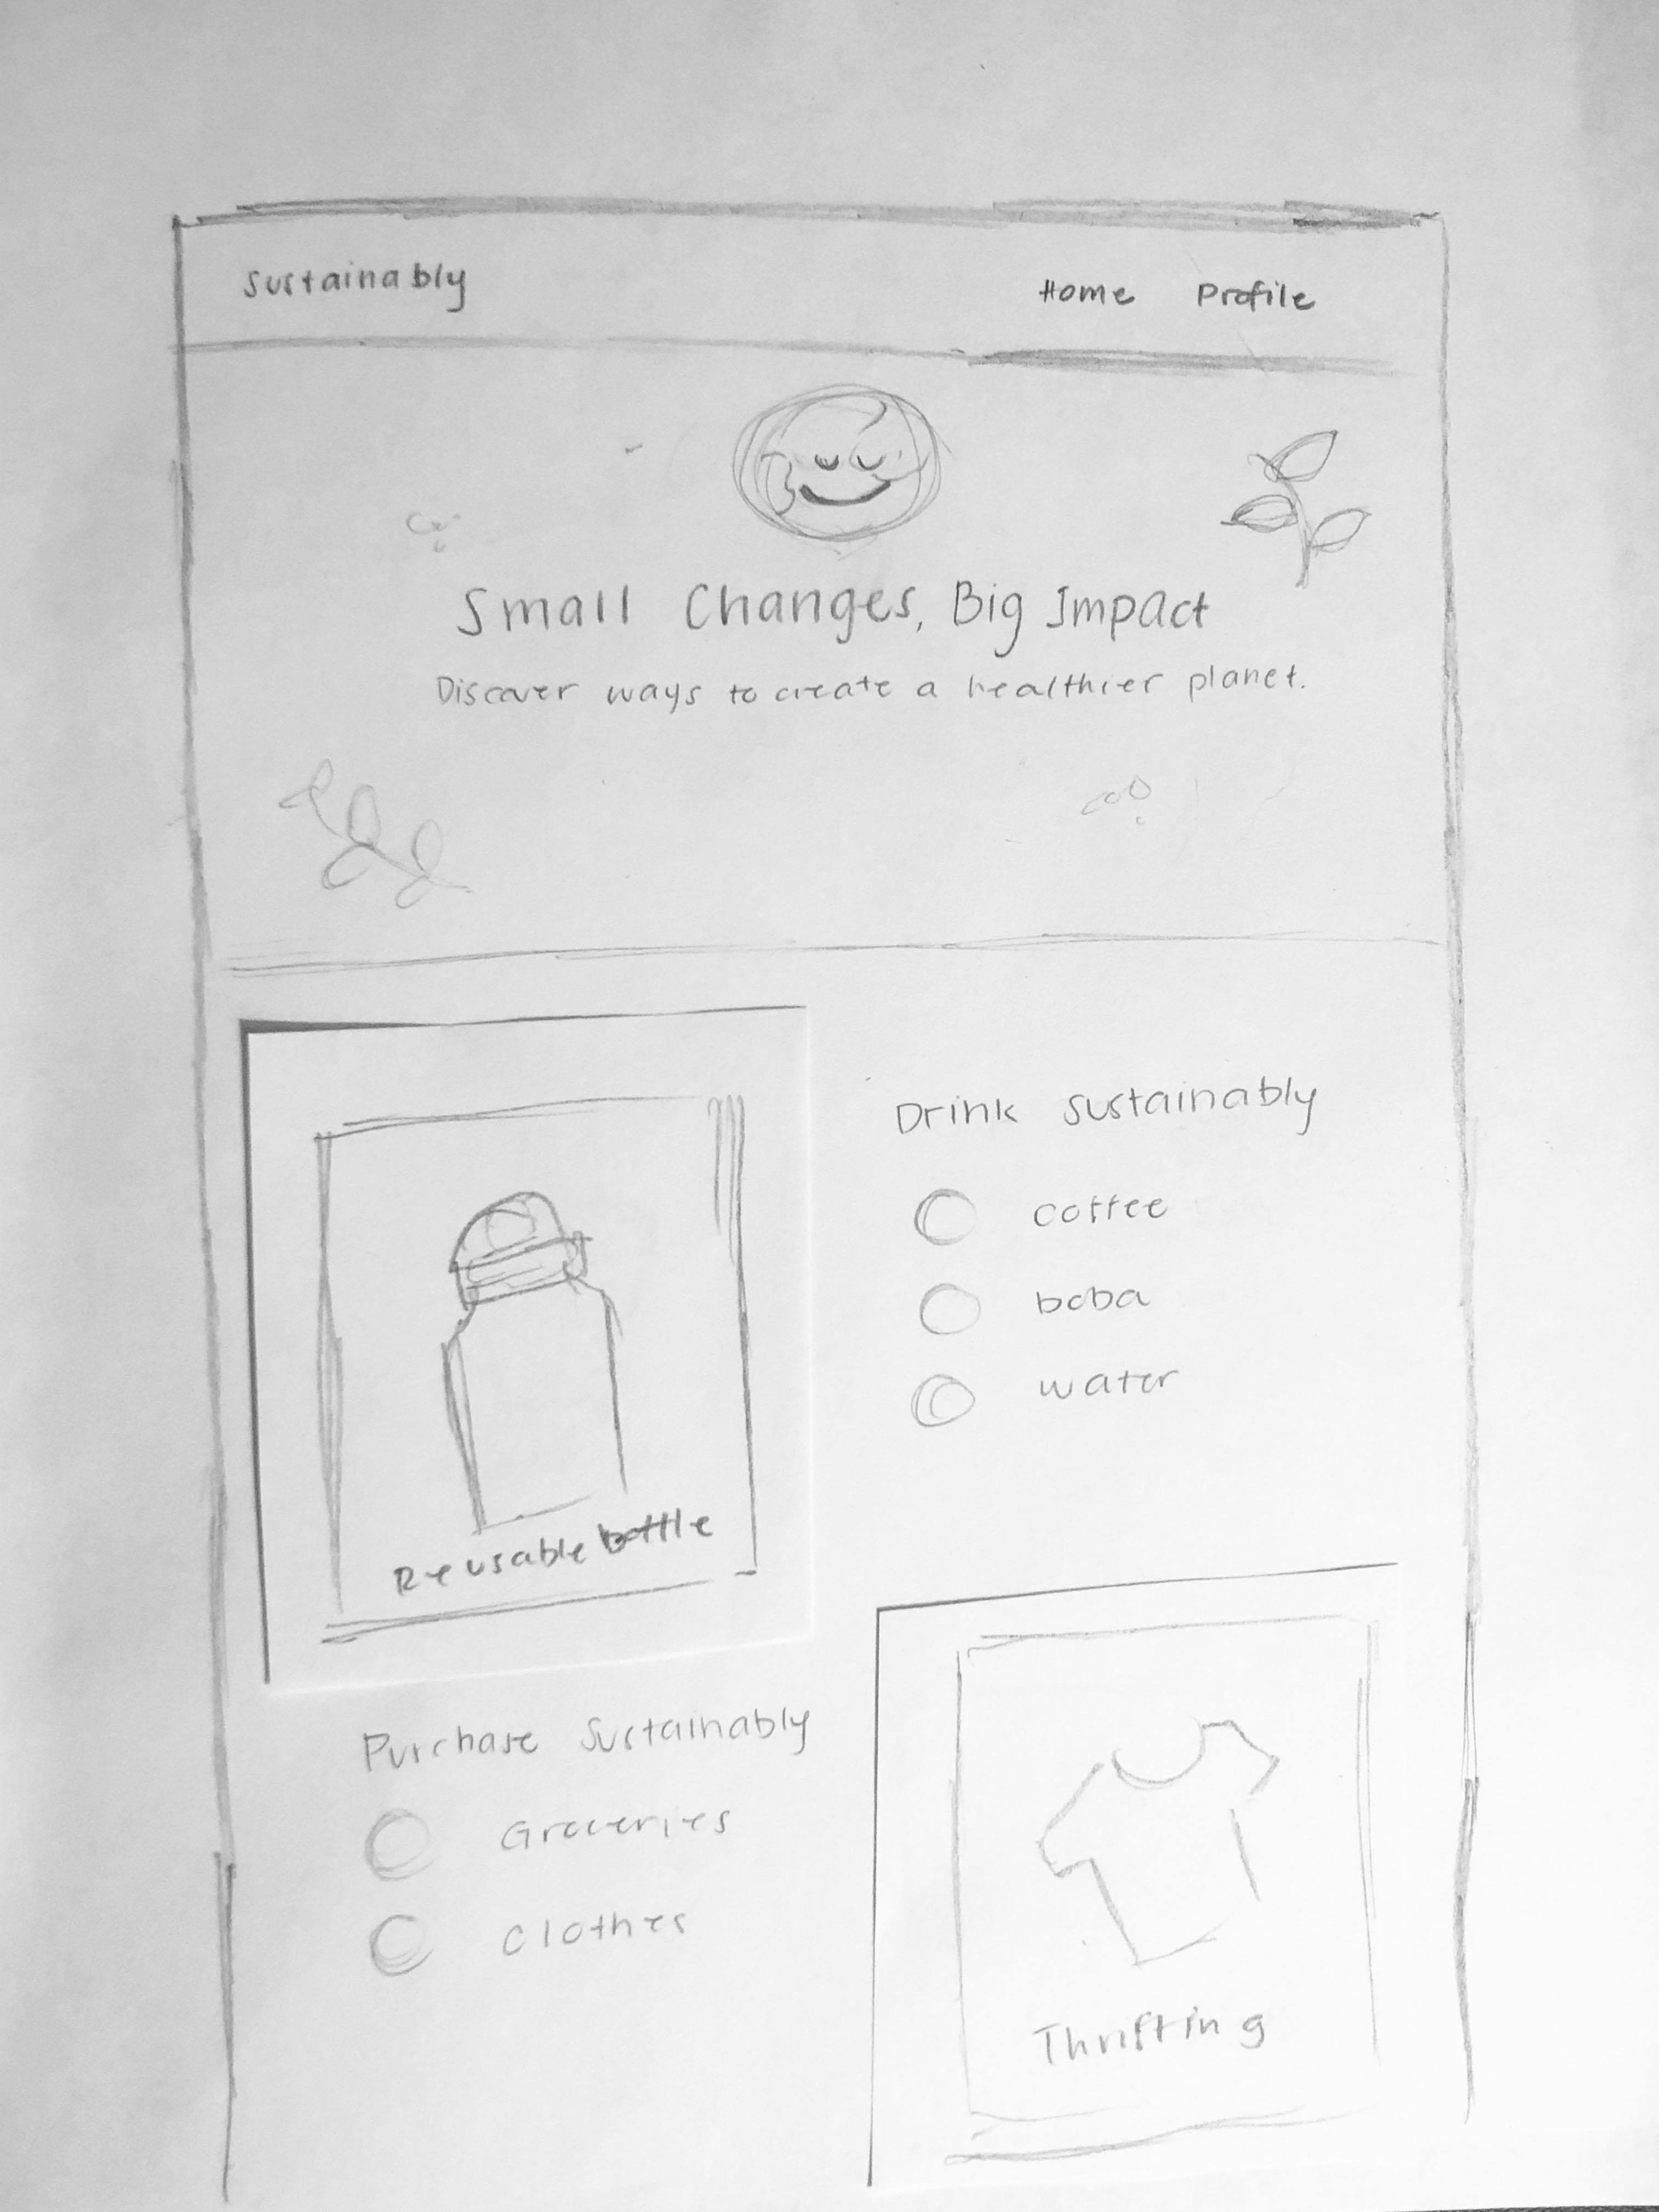 Sustainably
Home Profile
Small Changes, Big Impact
Discover ways to create a healthier planet.
Drink sustainably
coffee
boba
water
Reusable bottle
Purchase Sustainably
Groceries
Clothes
Thrifting